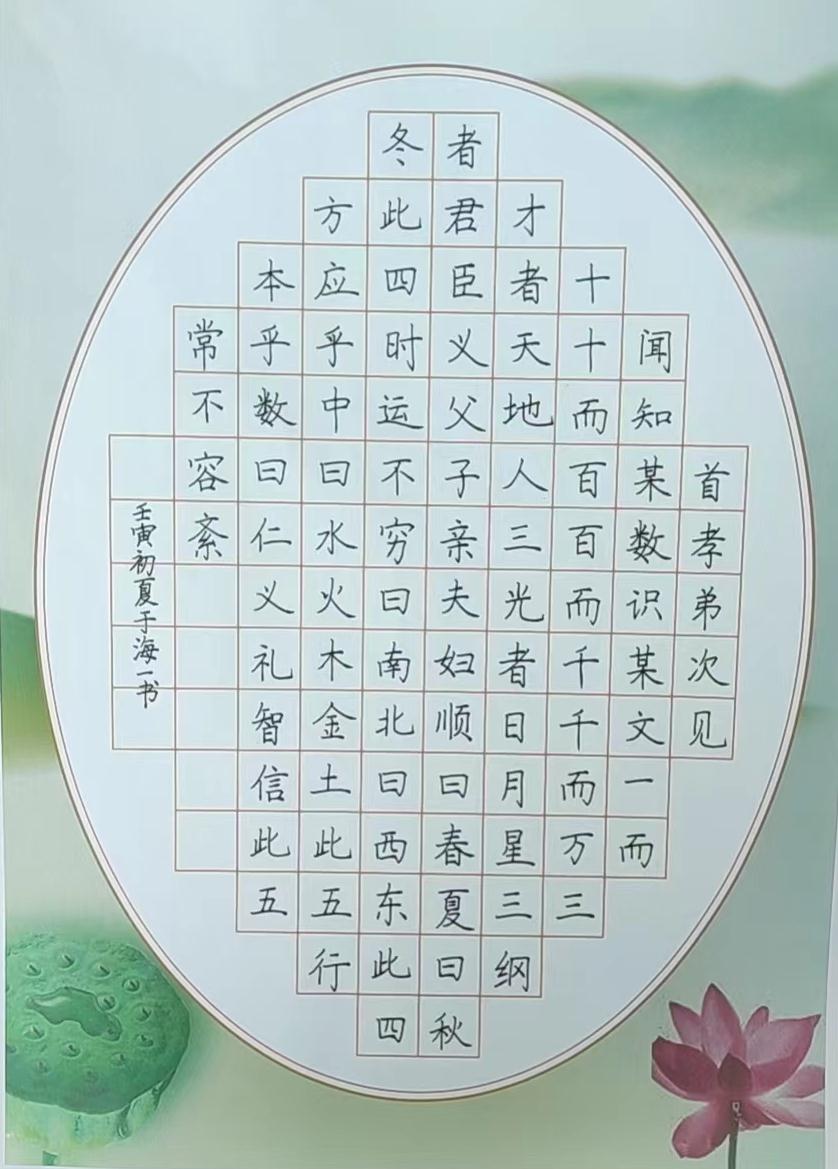 首孝弟次见
闻知某数识某文一而
十十而百百而千千而万三
才者天地人三光者日月星三纲
者君臣义父子亲夫妇顺曰春夏曰秋
冬此四时运不穷曰南北曰西东此四
方应乎中曰水火木金土此五行
本乎数曰仁义礼智信此五
常不容紊
壬寅初夏于海一书